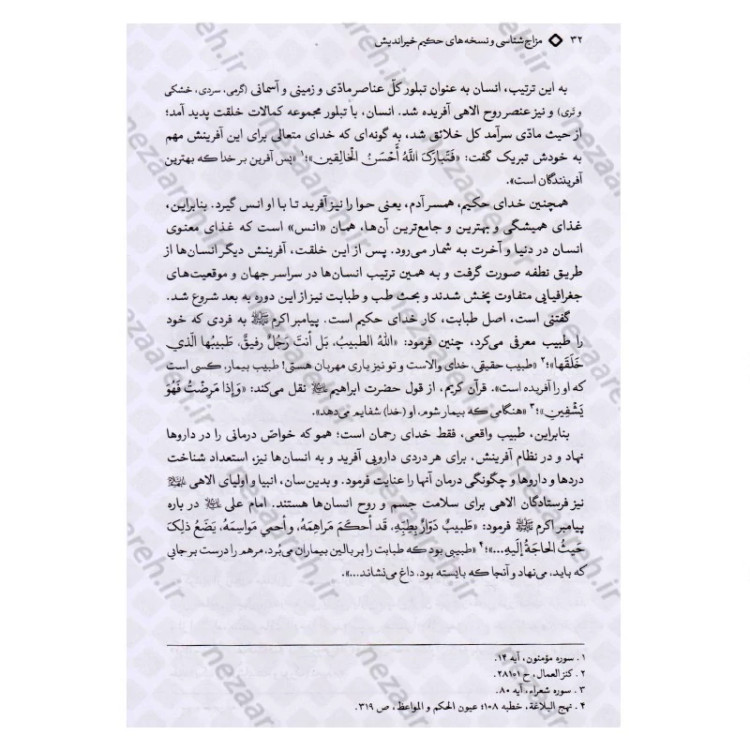 ۳۲ مزاج‌شناسی و نسخه‌های حکیم خیراندیش
به این ترتیب، انسان به عنوان تبلور کلّ عناصر مادّی و زمینی و آسمانی (گرمی، سردی، خشکی
و تری) و نیز عنصر روح الاهی آفریده شد. انسان، با تبلور مجموعه کمالات خلقت پدید آمد؛
از حیث مادّی سرآمد کل خلائق شد، به گونه‌ای که خدای متعالی برای این آفرینش مهم
به خودش تبریک گفت: «فَتَبارَکَ اللهُ أَحسَنُ الخالِقین»؛۱ «پس آفرین بر خدا که بهترین
آفرینندگان است».
همچنین خدای حکیم، همسر آدم، یعنی حوا را نیز آفرید تا با او انس گیرد. بنابراین،
غذای همیشگی و بهترین و جامع‌ترین آن‌ها، همان «انس» است که غذای معنوی
انسان در دنیا و آخرت به شمار می‌رود. پس از این خلقت، آفرینش دیگر انسان‌ها از
طریق نطفه صورت گرفت و به همین ترتیب انسان‌ها در سراسر جهان و موقعیت‌های
جغرافیایی متفاوت پخش شدند و بحث طب و طبابت نیز از این دوره به بعد شروع شد.
گفتنی است، اصل طبابت، کار خدای حکیم است. پیامبر اکرم ﷺ به فردی که خود
را طبیب معرفی می‌کرد، چنین فرمود: «اللهُ الطَبیبُ، بَل أنتَ رَجُلٌ رفیقٌ، طَبیبُها الَّذي
خَلَقَها»؛۲ «طبیب حقیقی، خدای والاست و تو نیز یاری مهربان هستی! طبیب بیمار، کسی است
که او را آفریده است». قرآن کریم، از قول حضرت ابراهیم نقل می‌کند: «وَ إذا مَرِضْتُ فَهُوَ
یَشْفِینِ»؛۳ «هنگامی که بیمار شوم، او (خدا) شفایم می‌دهد».
بنابراین، طبیب واقعی، فقط خدای رحمان است؛ همو که خواصّ درمانی را در داروها
نهاد و در نظام آفرینش، برای هر دردی دارویی آفرید و به انسان‌ها نیز، استعداد شناخت
دردها و داروها و چگونگی درمان آنها را عنایت فرمود. و بدین‌سان، انبیا و اولیای الاهی
نیز فرستادگان الاهی برای سلامت جسم و روح انسان‌ها هستند. امام علی در باره
پیامبر اکرم ﷺ فرمود: «طَبیبٌ دَوّارٌ بِطِبِّهِ، قَد أَحکَمَ مَراهِمَهُ، و أحمی مَواسِمَهُ، یَضَعُ ذلِکَ
حَیثُ الحاجَةُ إلَیهِ...»؛۴ «طبیبی بود که طبابت را بر بالین بیماران می‌بُرد، مرهم را درست بر جایی
که باید، می‌نهاد و آنجا که بایسته بود، داغ می‌نشاند...».
۱ . سوره مؤمنون، آیه ۱۴.
۲ . کنز العمال، ح ۲۸۱۰۱.
۳ . سوره شعراء، آیه ۸۰.
۴ . نهج البلاغة، خطبه ۱۰۸؛ عیون الحکم و المواعظ، ص ۳۱۹.
nezaareh.ir